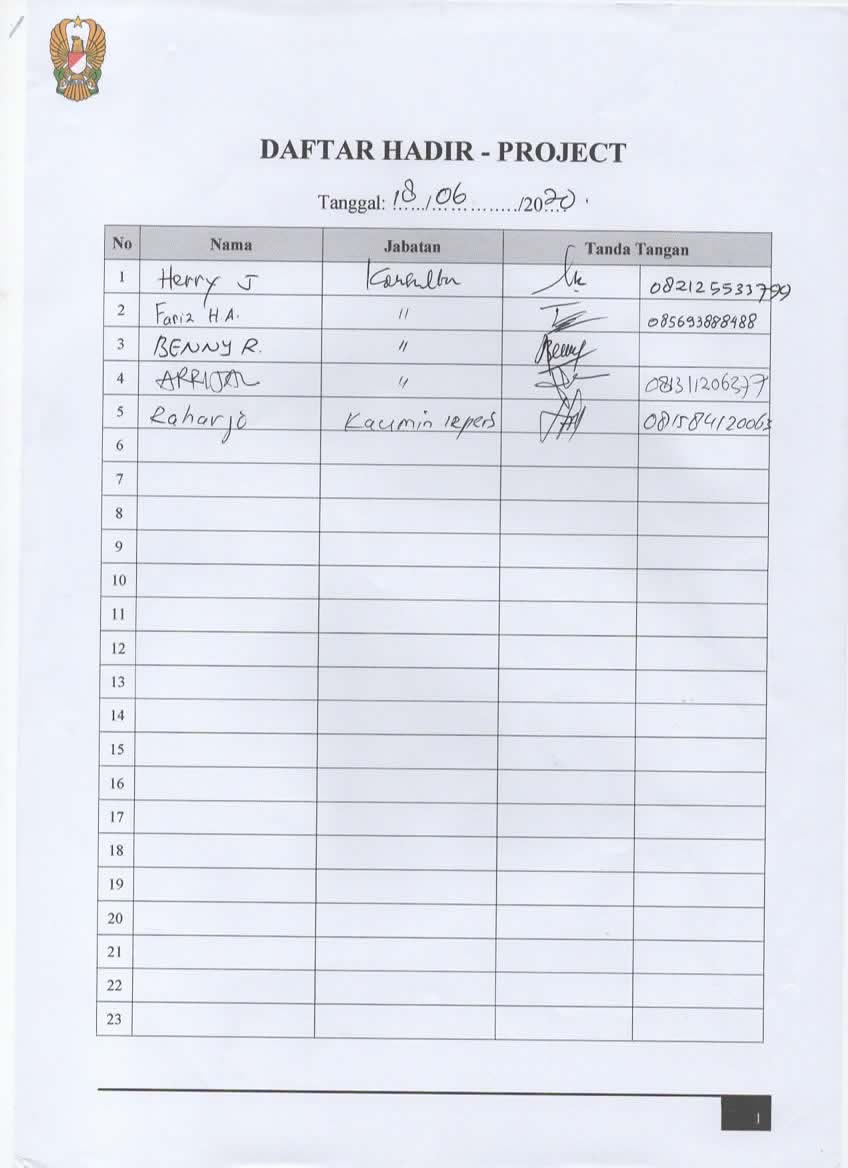 DAFTAR HADIR - PROJECT
Tanggal: 18/06/2020
No Nama Jabatan Tanda Tangan
1 Herry J 082125533799
2 Fariz H A. " 085693888488
3 BENNY R. " Benny
4 ARRIJAL " 081311206377
5 Raharjo Kaurmin 081584120063
6
7
8
9
10
11
12
13
14
15
16
17
18
19
20
21
22
23
1